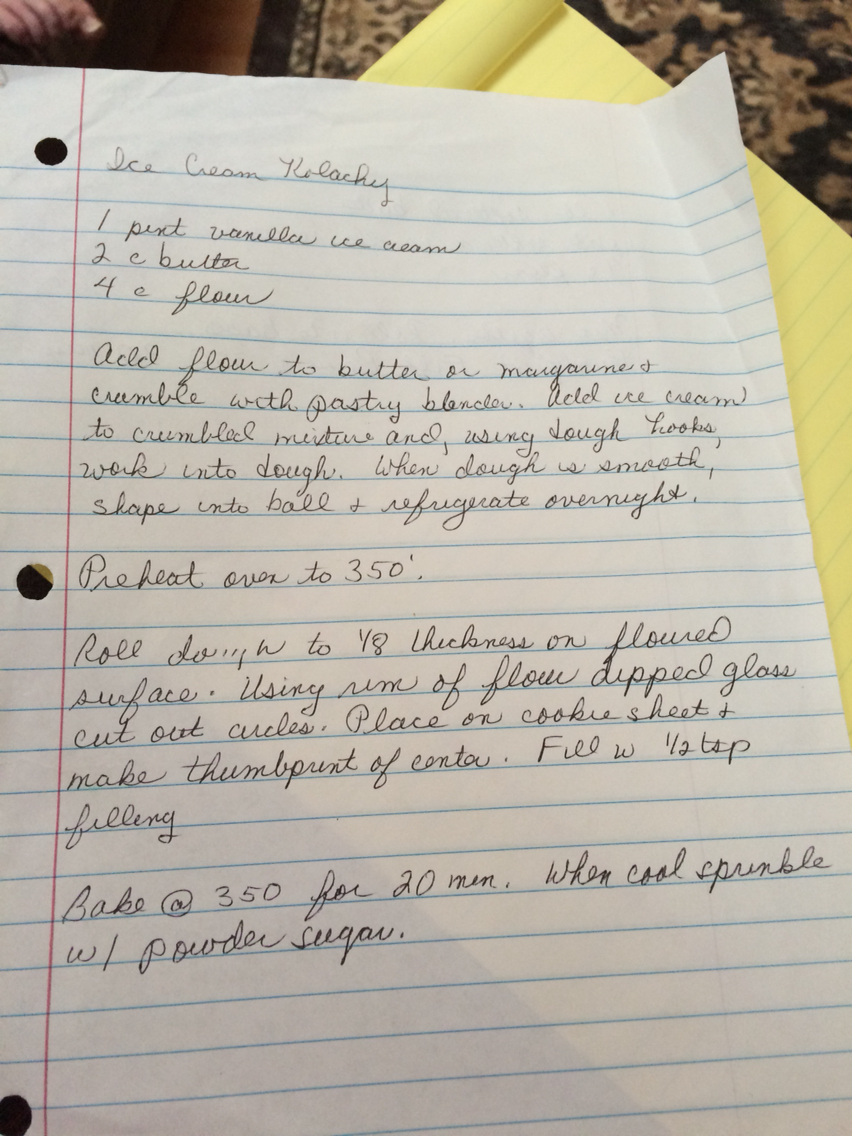 Ice Cream Kolachy
1 pint vanilla ice cream
2 c butter
4 c flour
Add flour to butter or margarine &
crumble with pastry blender. Add ice cream
to crumbled mixture and, using dough hooks,
work into dough. When dough is smooth,
shape into ball & refrigerate overnight.
Preheat oven to 350°.
Roll dough to 1/8 thickness on floured
surface. Using rim of flour dipped glass
cut out circles. Place on cookie sheet &
make thumbprint of center. Fill w 1/2 tsp
filling
Bake @ 350 for 20 min. When cool sprinkle
w/ powder sugar.